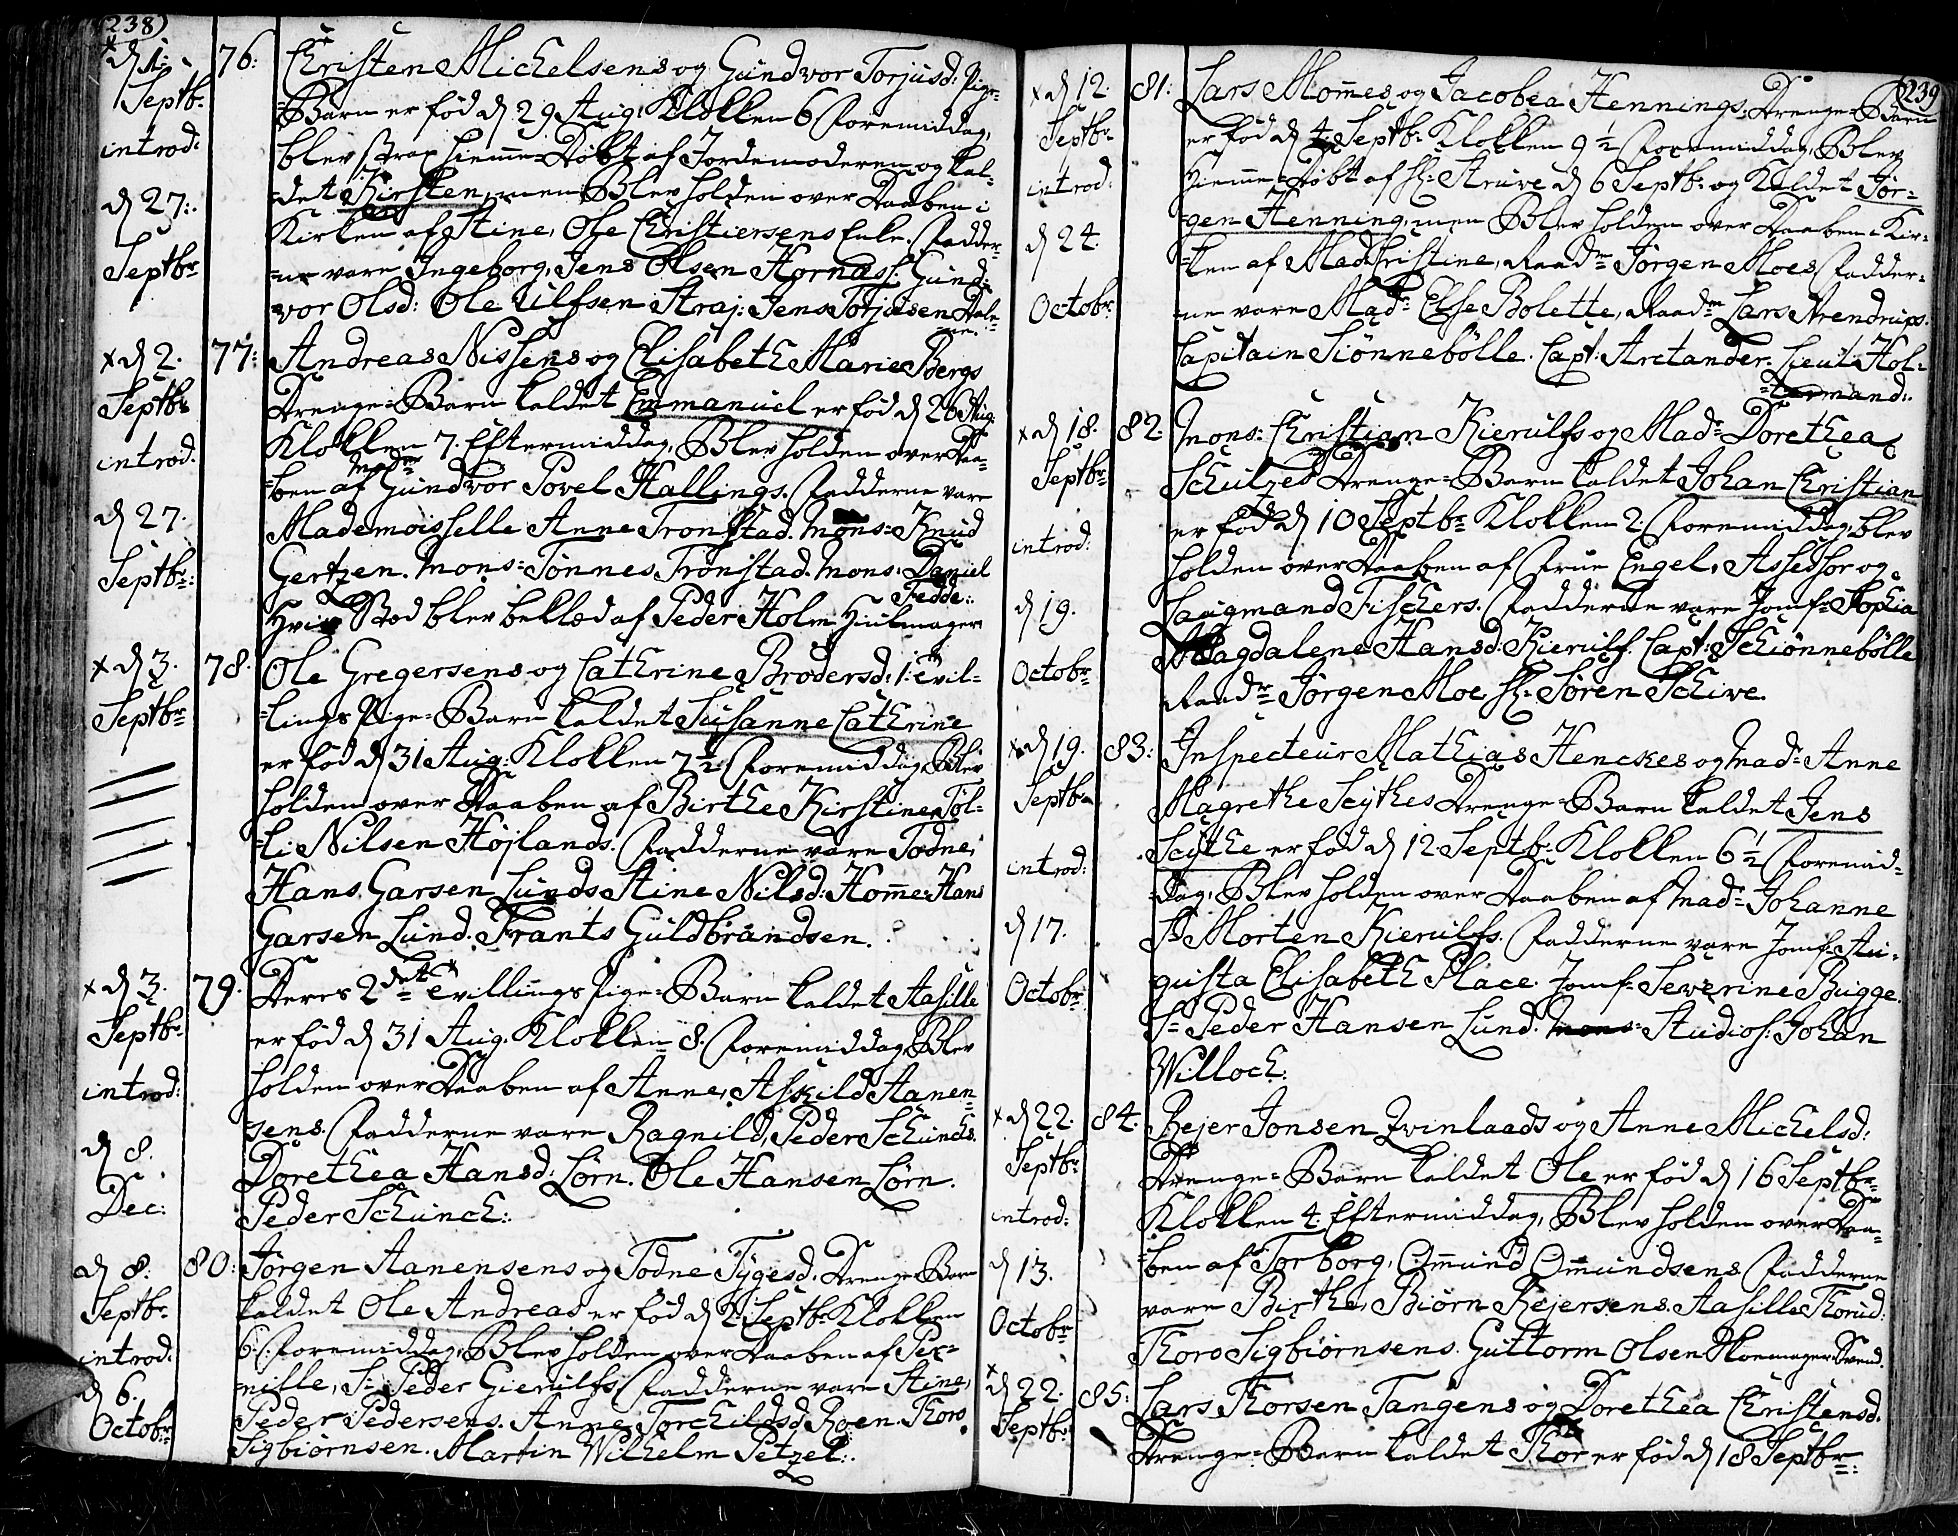 238)
× d 1: Septbr: introd: d 27: Septbr
76: Christen Michelsens og Gundvor Torjusd: Pige-
=Barn er fød d 29 Aug: Klokken 6 Formiddag,
blev strax hiemme=Døbt af Jordemoderen og kal-
=det Kirsten, men Blev holden over Daaben i
Kirken af Stine, Ole Christiersens Enke. Fadder-
=ne vare Ingeborg, Jens Olsen Gund-
vor Olsd: Ole Ulfsen Straj: Jens Torjusen
× d 2. Septbr introd: d 27. Septbr:
77: Andreas Nissens og Elisabeth Marie Bergs
Drenge=Barn kaldet Emmanuel er fød d 26 Aug:
Klokken 7. Eftermiddag, Blev holden over Daa-
=ben af Gundvor Povel Hallings. Fadderne vare
Mademoisselle Anne Tronstad. Mons: Knud
Gertzen. Mons: Tønnes Tronstad. Mons: Daniel
Fedde:
Hvis Sted blev beklæd af Peder Holm Hiulmager
× d 3. Septbr
78. Ole Gregersens og Cathrine Brodersd: 1: Tvil-
=lings Pige=Barn kaldet Susanne Cathrine
er fød d 31 Aug: Klokken 7½ Formiddag, Blev
holden over Daaben af Birthe Kirstine, Tol-
=li Nilsen Højlands. Fadderne vare Todne,
Hans Garsen Lunds Stine Nilsd: Homme: Hans
Garsen Lund. Frants Guldbrandsen.
× d 3. Septbr introd: d 8. Dec:
79. Deres 2det Tvillings Pige=Barn kaldet Aasille
er fød d 31 Aug. Klokken 8. Formiddag, Blev
holden over Daaben af Anne, Askild Aanen-
sens. Fadderne vare Ragnild, Peder Schunchs.
Dorethea Hansd: Lørn. Ole Hansen Lørn.
Peder Schunch:
d 8: Septbr introd: d 6. Octobr
80: Jørgen Aanensens og Todne Tygesd. Drenge=Barn
kaldet Ole Andreas er fød d 2 Septbr Klokken
6. Formiddag, Blev holden over Daaben af Per-
=nille, Sr Peder Gierulfs, Fadderne vare Stine,
Peder Pedersens. Anne Torchildsd. Roen. Thoro
Sigbiørnsen. Martin Wilhelm Petzel:
239
× d 12. Septbr introd: d 24. Octobr
81: Lars Mommes og Jacobea Hennings, Drenge=Barn
er fød d 4 Septbr Klokken 9½ Formiddag, Blev
Hiemme=Døbt af Hr: Struve d 6 Septbr: og Kaldet Jør-
=gen Henning, men Blev holden over Daaben i Kir-
=ken af Mad Christine, Raadm Jørgen Moes, Fadder-
=ne vare Madm Else Bolette, Raadm Lars Arendrups.
Capitain Siønnebølle. Capt: Arctander. Lieut Hol-
=termand:
× d 18. Septbr introd: d 19. Octobr
82. Mons: Christian Kierulfs og Madm Dorethea
Schultzes Drenge=Barn kaldet Johan Christian
er fød d 10 Septbr Klokken 2. Formiddag, blev
holden over Daaben af Frue Engel, Assessor og
Laugmand Fischers. Fadderne vare Jomf: Sophia
Magdalene Hansd: Kierulf. Capt: Schiønnebølle
Raadm Jørgen Moe Hr: Søren Schive.
× d 19. Septbr introd: d 17. Octobr
83: Inspecteur Mathias Henckes og Mad: Anne
Magrethe Scythes Drenge=Barn kaldet Jens
Scythe er fød d 12 Septbr: Klokken 6½ Formid-
=dag, Blev holden over Daaben af Mad: Johanne
Sr Morten Kierulfs. Fadderne vare Jomf: Au-
gusta Elisabeth Place. Jomf: Severine Bugge.
Sr Peder Hansen Lund. Mons: Studios: Johan
Willoch:
× d 22. Septbr: introd: d 13. Octobr
84. Rejer Jonsen Qvinlaads og Anne Michelsd:
Drenge=Barn kaldet Ole er fød d 16 Septbr
Klokken 4. Eftermiddag, Blev holden over Daa-
=ben af Torborg, Ommund Ommundsens Fadderne
vare Birthe, Biørn Rejersens. Aasille Thorud:
Thoro Sigbiørnsens. Guttorm Olsen Skoemager Svend.
× d 22. Septbr:
85: Lars Thorsen Tangens og Dorethea Christensd.
Drenge=Barn kaldet Thor er fød d 18 Septbr: